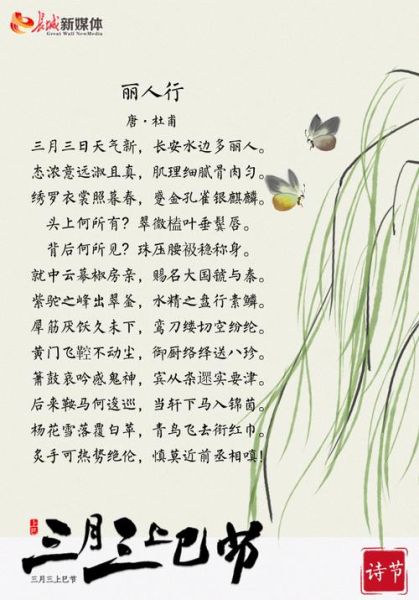 长城新媒体
Great Wall NewMedia
丽人行
唐·杜甫
三月三日天气新，长安水边多丽人。
态浓意远淑且真，肌理细腻骨肉匀。
绣罗衣裳照暮春，蹙金孔雀银麒麟。
头上何所有？翠微榼叶垂鬓唇。
背后何所见？珠压腰衱稳称身。
就中云幕椒房亲，赐名大国虢与秦。
紫驼之峰出翠釜，水精之盘行素鳞。
犀筋厌饫久未下，鸾刀缕切空纷纶。
黄门飞鞚不动尘，御厨络绎送八珍。
箫鼓哀吟感鬼神，宾从杂遝实要津。
后来鞍马何逡巡，当轩下马入锦茵。
杨花雪落覆白苹，青鸟飞去衔红巾。
炙手可热势绝伦，慎莫近前丞相嗔！
三月三上巳节
三月三上巳节
诗节